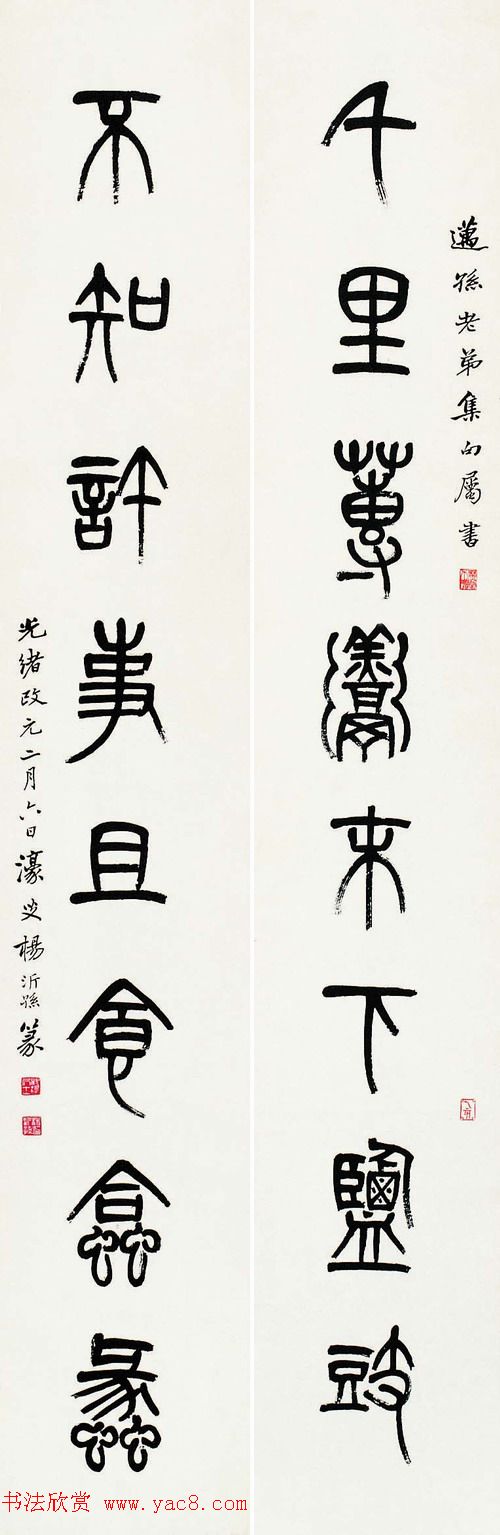 邁孫老弟集句屬書
千里蓴羹未下鹽豉
不知許事且食蛤蠡
光緒改元二月六日濠叟楊沂孫篆
书法欣赏 www.yac8.com